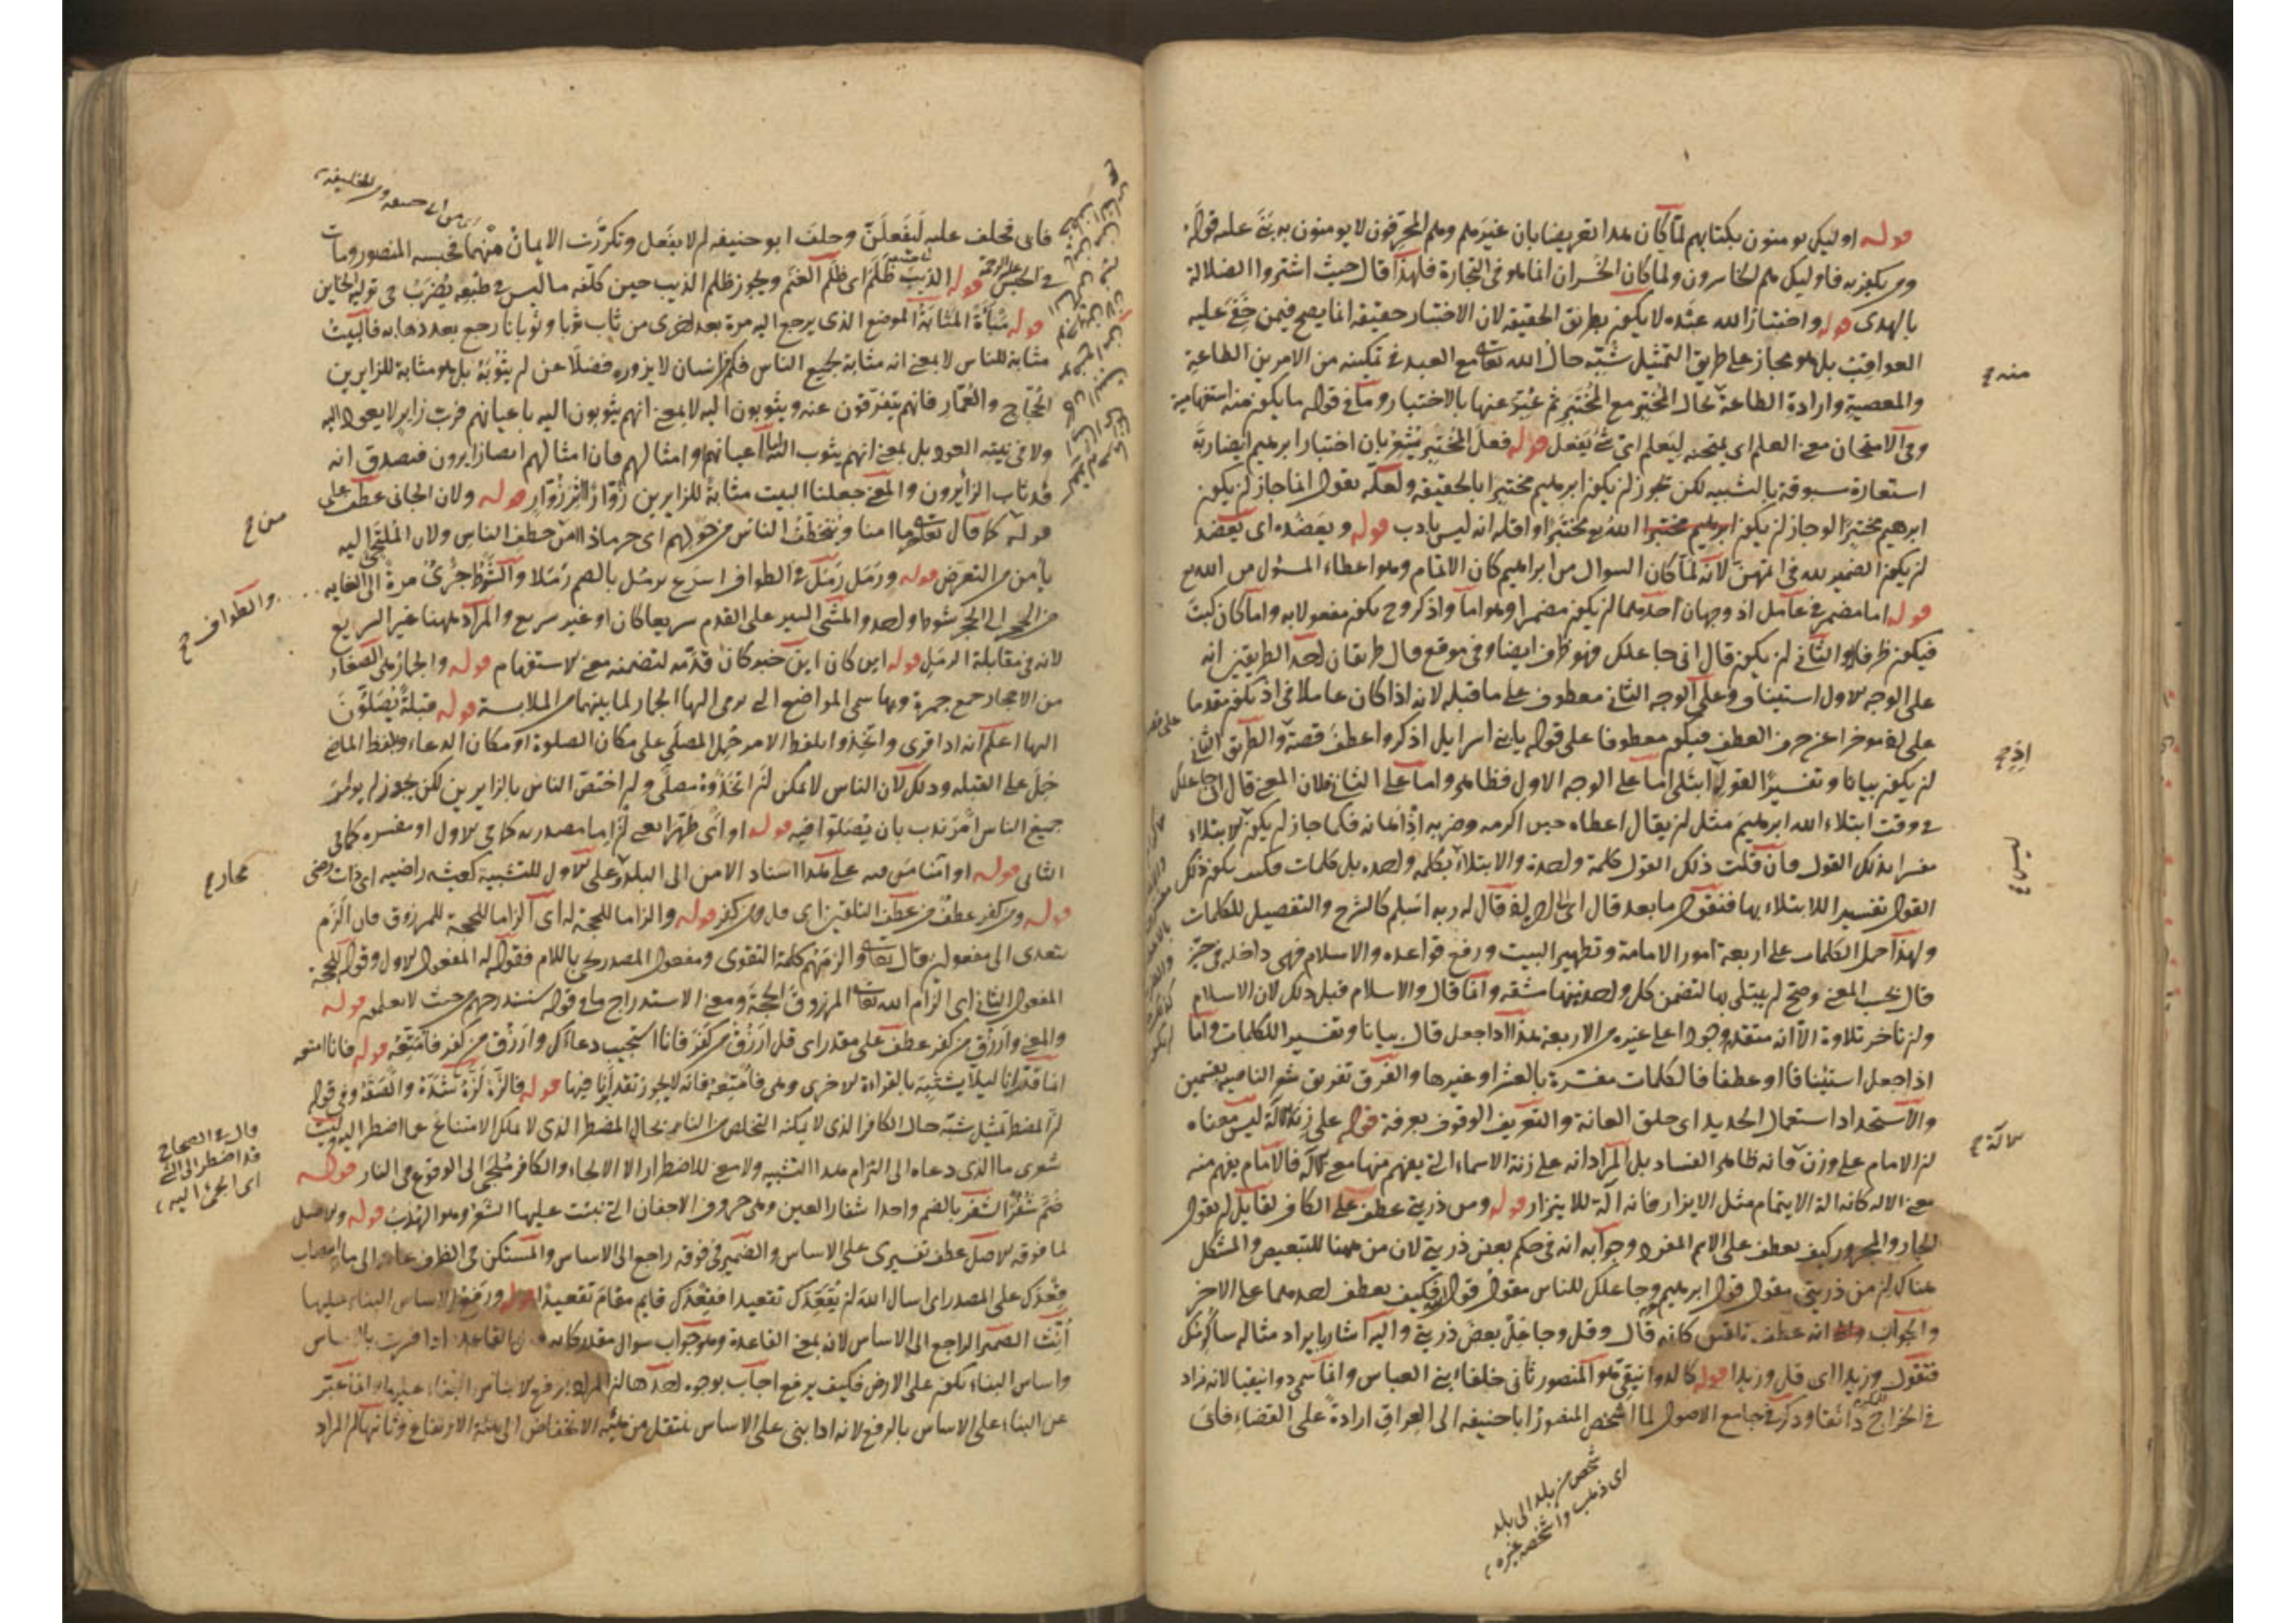 قوله اوليك يومنون بكتابهم لما كان هذا تعريضا بان غيرهم وهم المحرفون لا يومنون به بنى عليه قوله
ومن يكفر به فاوليك هم الخاسرون ولما كان الخسران انما هو فى التجارة فلهذا قال حيث اشتروا الضلالة
بالهدى قوله واختبار الله عبده لا يكون بطريق الحقيقة لان الاختبار حقيقة انما يصح فيمن خفى عليه
العواقب بل هو مجاز على طريق التمثيل شبه حال الله تعالى مع العبد فى تمكينه من الامرين الطاعة
والمعصية وارادة الطاعة بحال المختبر مع المختبر ثم عبر عنها بالاختبار وما فى قوله ما يكون منه استفهامية
وفى الامتحان معنى العلم اى يمتحنه ليعلم اى شى يفعل قوله فعل المختبر يشعر بان اختبار ابرهيم ايضا ربه
استعارة مسبوقة بالتشبيه لكن يجوز ان يكون ابرهيم مختبرا بالحقيقة ولعله يقول انما جاز ان يكون
ابرهيم مختبرا لو جاز ان يكون الله مختبرا واقله انه ليس بادب قوله ويعضده اى يعضد
ان يكون الضمير لله فى اتمهن لانه لما كان السوال من ابراهيم كان الاتمام وهو اعطاء المسئول من الله تع
قوله اما مضمر فى عامل اذ وجهان احدهما ان يكون مضمرا وهو اما واذكر وح يكون مفعولا به واما كان كيت
فيكون ظرفا والثانى ان يكون قال انى جاعلك فهو ظرف ايضا وفى موقع قال طريقان احد الطريقين انه
على الوجه الاول استيناف وعلى الوجه الثانى معطوف على ما قبله لانه اذا كان عاملا فى اذ يكون مقدما
عليه موخرا عن حرف العطف فيكون معطوفا على قوله يا بنى اسرايل اذكروا عطف قصة والطريق الثانى
ان يكون بيانا وتفسيرا لقوله ابتلى اما على الوجه الاول فظاهر واما على الثانى فلان المعنى قال انى جاعلك
فى وقت ابتلاء الله ابرهيم مثل ان يقال اعطاه حين اكرمه وضربه اذ اهانه فكما جاز ان يكون الابتلاء
مفسرا بذلك القول فان قلت ذلك القول كلمة واحدة والابتلاء بكلمه واحده بل كلمات فكيف يكون ذلك
القول تفسيرا للابتلاء بها فنقول ما بعد قال له ربه اسلم كالشرح والتفصيل للكلمات
ولهذا حمل الكلمات على اربعة امور الامامة وتطهير البيت ورفع قواعده والاسلام فهى داخله فى حيز
قال بحسب المعنى وصح ان يبتلى بها لتضمن كل واحد منها مشقه وانما قال والاسلام قبل ذلك لان الاسلام
وان تاخر تلاوة الا انه متقدم وجودا على غيره من الاربعة هذا اذا جعل قال بيانا وتفسيرا للكلمات واما
اذا جعل استينافا او عطفا فالكلمات مفسرة بالعشر او غيرها والفرق تفريق شعر الناصيه بقسمين
والاستحداد استعمال الحديد اى حلق العانة والتعريف الوقوف بعرفة قوله على زنة الآلة ليس معناه
ان الامام على وزن آلة فانه ظاهر الفساد بل المراد انه على زنة الاسماء التى يفهم منها معنى الآلة فالامام يفهم منه
معنى الاله كانه الة الايتمام مثل الازار فانه آلة للايتزار قوله ومن ذريتى عطف على الكاف لقايل ان يقول
الجار والمجرور كيف يعطف على الاسم المفرد وجوابه انه فى حكم بعض ذريتى لان من ههنا للتبعيض والمشكل
هناك ان من ذريتى مقول قول ابرهيم وجاعلك للناس مقول قول الله فكيف يعطف احدهما على الاخر
والجواب انه عطف تلقين كانه قال وقل وجاعل بعض ذريتى واليه اشار بايراد مثاله ساكرمك
فتقول وزيدا اى قل وزيدا قوله كالدوانيقى هو المنصور ثانى خلفاء بنى العباس وانما سمى دوانيقيا لانه زاد
فى الخراج دانقا وذكر فى جامع الاصول لما اشخص المنصور ابا حنيفه الى العراق ارادة على القضاء فابى
منه ح
اذ ح
سالة ح
شخص من بلد الى بلد
اى ذهب واشخصه غيره
فابى فحلف عليه ليفعلن وحلف ابو حنيفه ان لا يفعل وتكررت الايمان منهما فحبسه المنصور ومات
فى الحبس قوله الذيب ظلم اى ظلم الغنم ويجوز ظلم الذيب حين كلفه ما ليس فى طبعه يضرب فى تولية الخاين
قوله مباءة المثابة الموضع الذى يرجع اليه مرة بعد اخرى من ثاب ثوبا وثوبانا رجع بعد ذهابه فالبيت
مثابة للناس لا بمعنى انه مثابة لجميع الناس فكم من انسان لا يزوره فضلا عن ان يثوبه بل هو مثابة للزايرين
الحجاج والعمار فانهم يتفرقون عنه ويثوبون اليه لا بمعنى انهم يثوبون اليه باعيانهم فرب زاير لا يعود اليه
ولا فى نيته العود بل بمعنى انهم يثوب اليه اما اعيانهم او امثالهم فان امثالهم ايضا زايرون فيصدق انه
قد ثاب الزايرون والمعنى جعلنا البيت مثابة للزايرين زوار اثر زوار قوله ولان الجانى عطف على
قوله كما قال تعالى حرما امنا ويتخطف الناس من حولهم اى حرما ذا امن من خطف الناس ولان الملتجى اليه
يامن من التعرض قوله ورمل رمل فى الطواف اسرع يرمل بالضم رملا والشوط جرى مرة الى الغايه
من الحجر الى الحجر شوط واحد والمشى السير على القدم سريعا كان او غير سريع والمراد ههنا غير السريع
لانه فى مقابلة الرمل قوله اين كان اين خبر كان قدمه لتضمنه معنى الاستفهام قوله والجمار هى الصغار
من الاحجار جمع جمرة وبها سمى المواضع التى يرمى اليها الجمار لما بينهما من الملابسة قوله قبلة يصلون
اليها اعلم انه اذا قرى واتخذوا بلفظ الامر حمل المصلى على مكان الصلوة او مكان الدعاء وبلفظ الماضى
حمل على القبله وذلك لان الناس لا يمكن ان اتخذوه مصلى وان اختص الناس بالزايرين لكن يجوز ان يومر
جميع الناس امر ندب بان يصلوا فيه قوله او اى طهرا يعنى ان اما مصدريه كما فى الاول او مفسره كما فى
الثانى قوله او آمنا من فيه على هذا اسناد الامن الى البلد وعلى الاول للتشبيه كعيشه راضيه اى ذات رضى
قوله ومن كفر عطف من عطف التلقين اى قل ومن كفر قوله والزاما للحجة له اى الزاما للحجة للمرزوق فان الزم
يتعدى الى مفعولين قال تعالى والزمهم كلمة التقوى ومفعول المصدر يجى باللام فقوله له المفعول الاول وقوله للحجة
المفعول الثانى اى الزام الله تعالى المرزوق الحجة ومعنى الاستدراج ما فى قوله سنستدرجهم من حيث لا يعلمون قوله
والمعنى وارزق من كفر عطف على مقدر اى قل ارزق من كفر فانا استجيب دعاءك وارزق من كفر فامتعه قوله فانا امتعه
انما قدر انا ليلا يشتبه بالقراءة الاخرى وهى فامتعه فانه لا يجوز تقدير انا فيها قوله فالزه لزه شده والصقه وفى قوله
لز المضطر تمثيل شبه حال الكافر الذى لا يمكنه التخلص من النار بحال المضطر الذى لا يملك الامتناع عما اضطر اليه وليت
شعرى ما الذى دعاه الى التزام هذا التشبيه ولا معنى للاضطرار الا الالجاء والكافر ملجى الى الوقوع فى النار قوله
ضم شفر الشفر بالضم واحد اشفار العين وهى حروف الاجفان التى تنبت عليها الشعر وهو الهدب قوله والاصل
لما فوقه الاصل عطف تفسيرى على الاساس والضمير فى فوقه راجع الى الاساس والمستكن فى الظرف عايد الى ما وانتصاب
قعدك على المصدر اى اسال الله ان يقعدك تقعيدا فقعدك قايم مقام تقعيدا قوله ورفع الاساس البناء عليها
انث الضمير الراجع الى الاساس لانه بمعنى القاعدة وهو جواب سوال مقدر كانه قال القاعدة اذا فسرت بالاساس
واساس البناء يكون على الارض فكيف يرفع اجاب بوجوه احدها ان المراد برفع الاساس البناء عليها وانما عبر
عن البناء على الاساس بالرفع لانه اذا بنى على الاساس ينتقل من هيئة الانخفاض الى هيئة الارتفاع وثانيها ان المراد
من ح
والطواف ح
مجاز ح
قال فى الصحاح
قد اضطر الى الشى
اى الجئ اليه